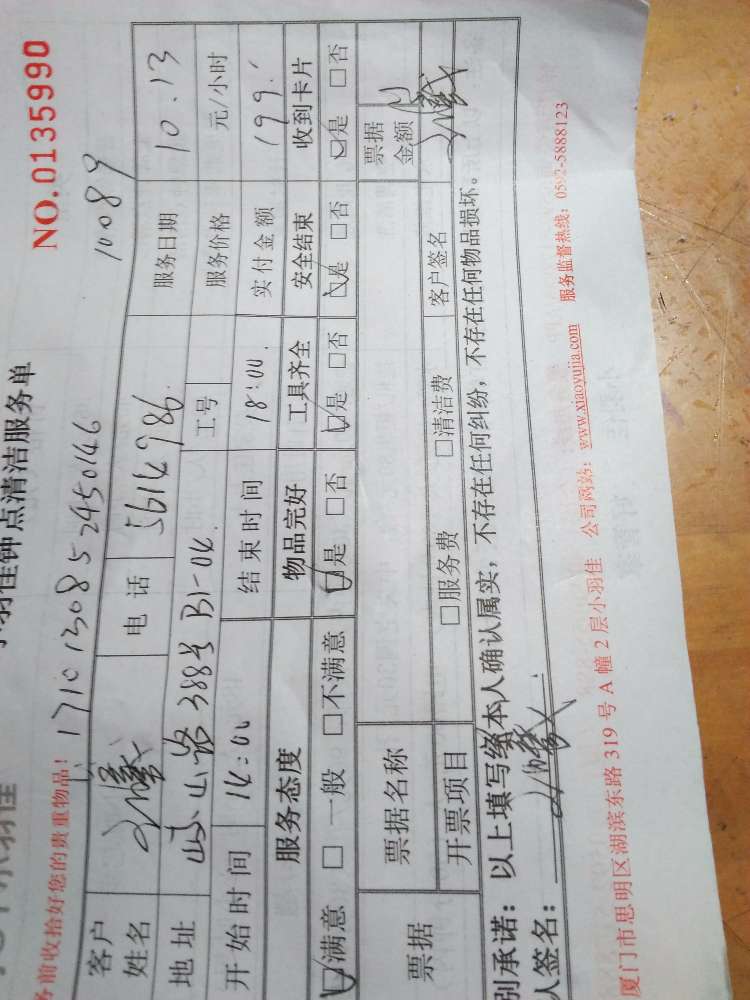 羽佳钟点清洁服务单
NO.0135990
务前收拾好您的贵重物品!
1710130852450146
10089
客户姓名
电话 5614986
服务日期 10.13
地址 388号 B1-04
工号
服务价格 元/小时
开始时间 14:00
结束时间 18:00
实付金额 199
服务态度 物品完好 工具齐全 安全结束 收到卡片
☑满意 □一般 □不满意 ☑是 □否 ☑是 □否 ☑是 □否 ☑是 □否
票据 票据名称 票据金额
开票项目 □服务费 □清洁费 客户签名
别承诺:以上填写经本人确认属实,不存在任何纠纷,不存在任何物品损坏。
人签名:
厦门市思明区湖滨东路 319 号 A 幢 2 层小羽佳 公司网站:www.xiaoyujia.com 服务监督热线:0592-5888123